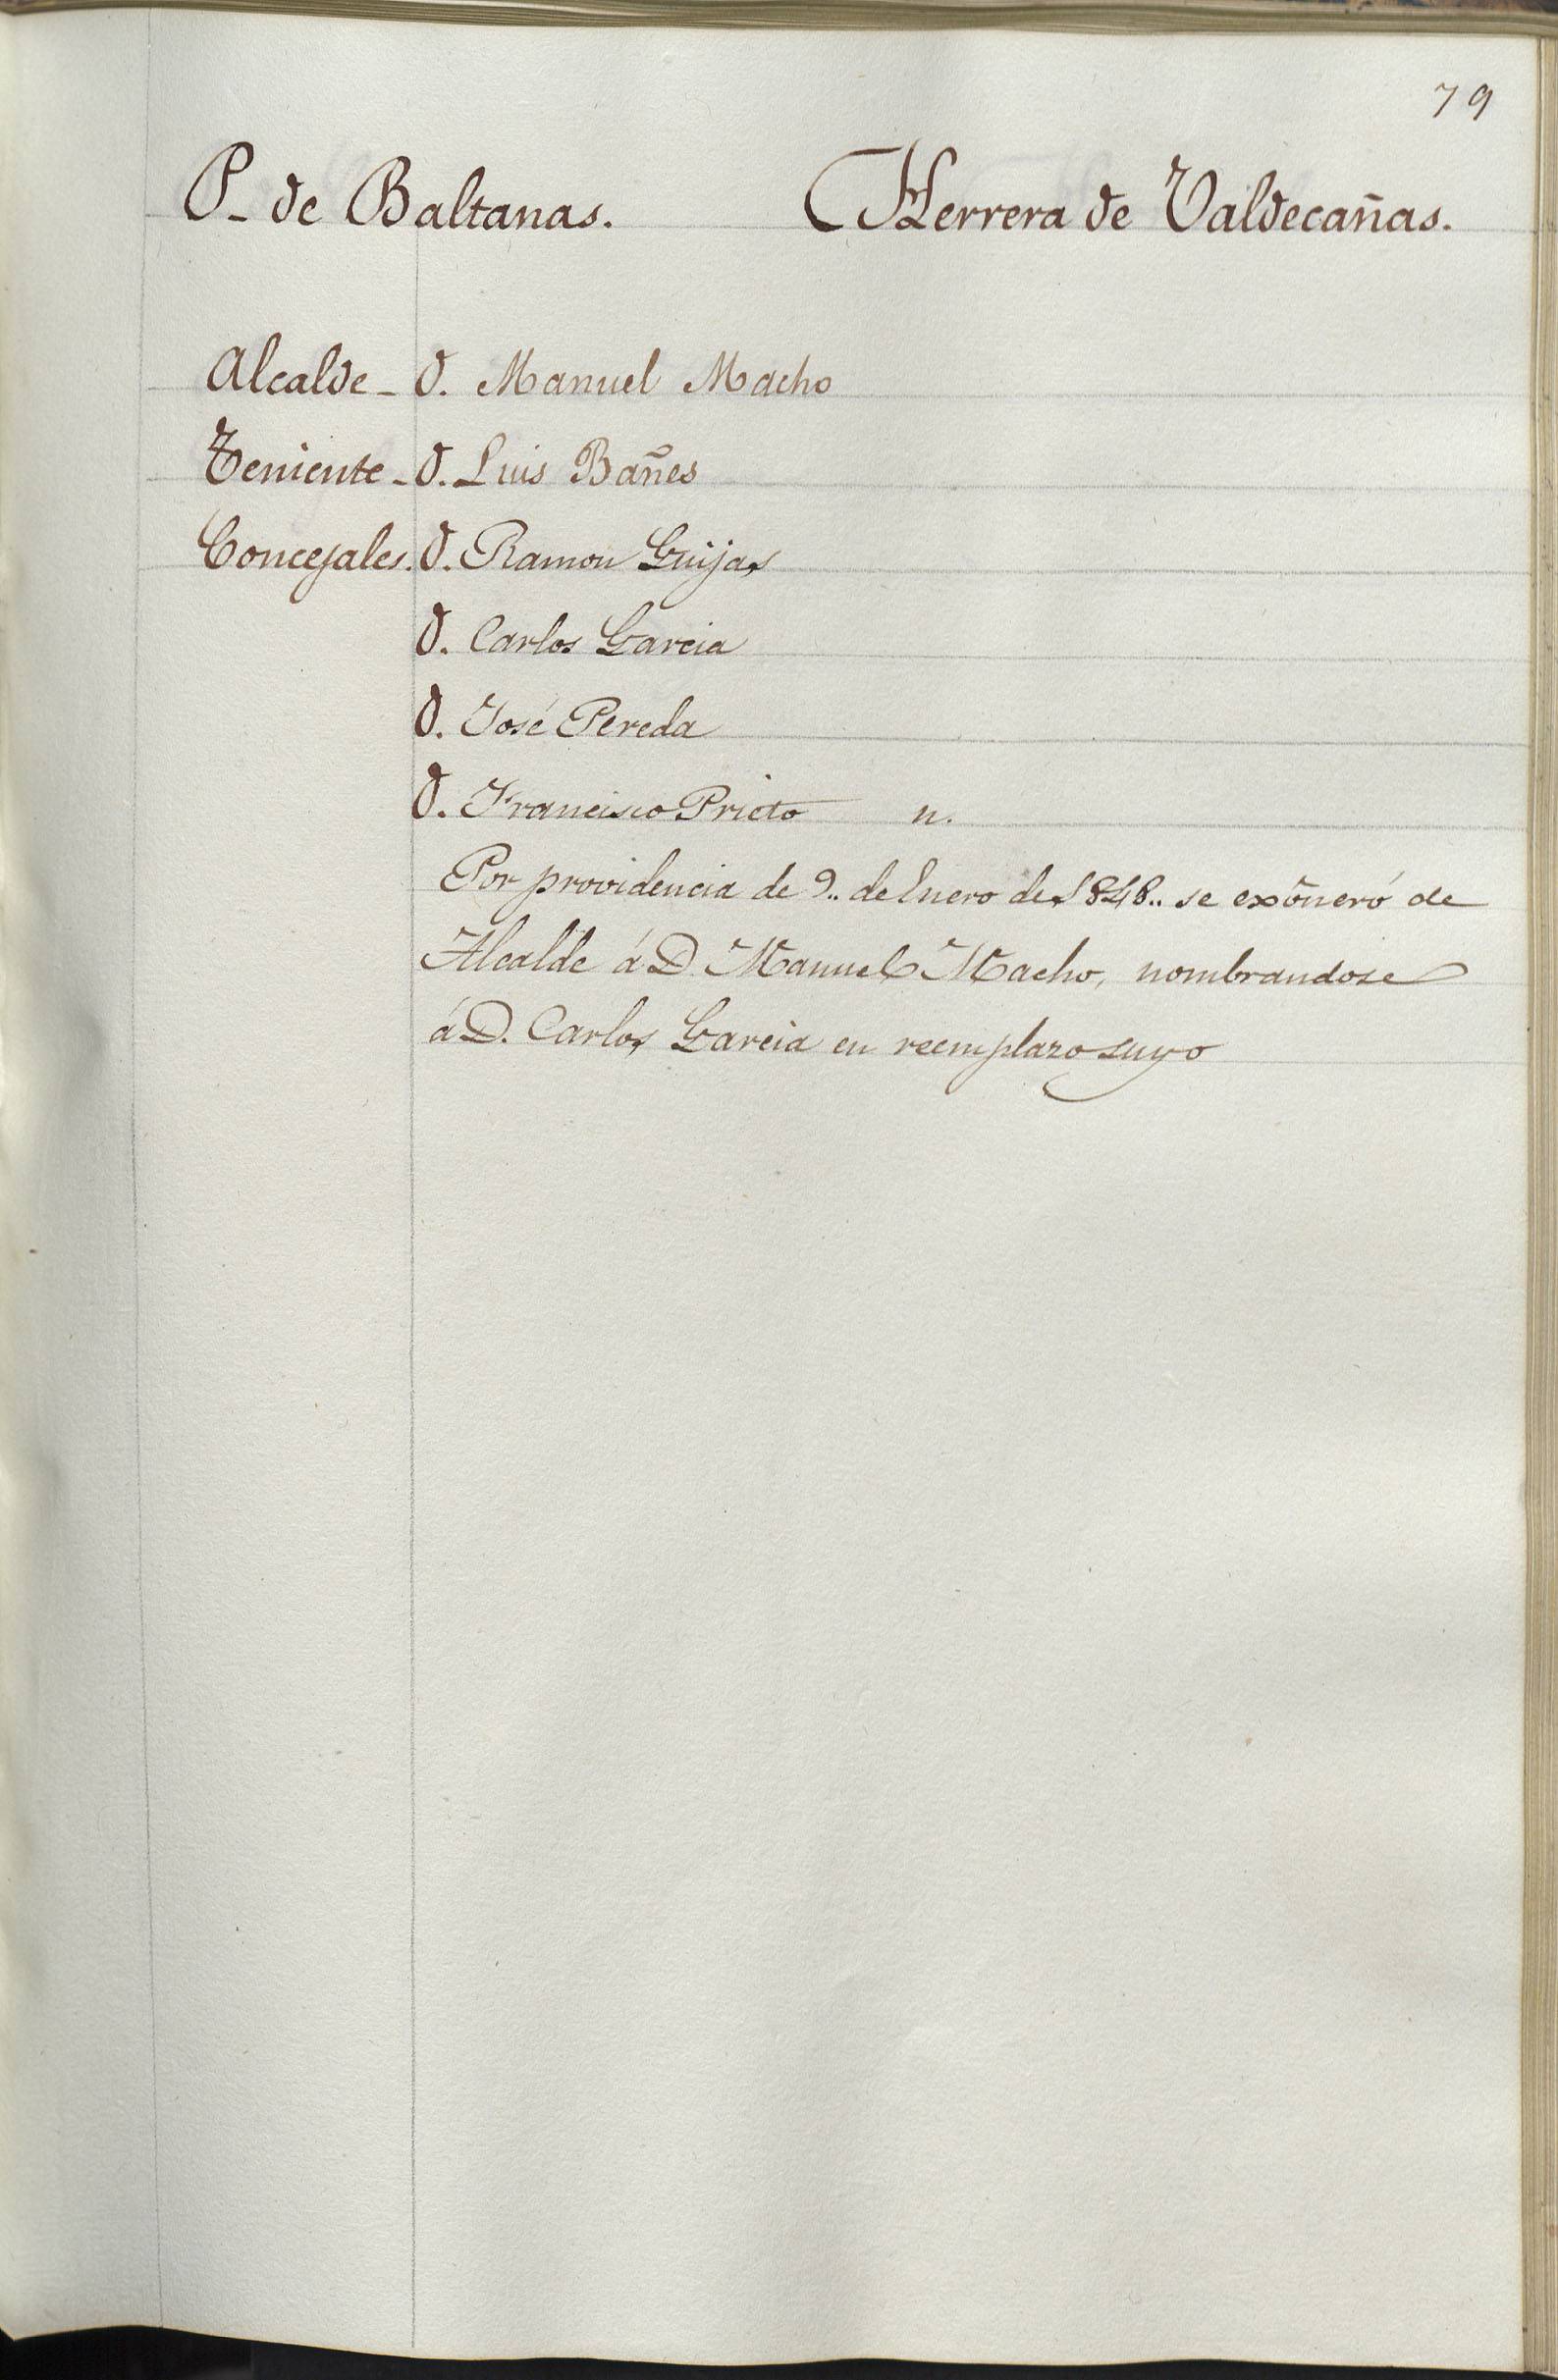 79
P- de Baltanas. Herrera de Valdecañas.
Alcalde - D. Manuel Macho
Teniente - D. Luis Bañes
Concejales. D. Ramon Guijas
D. Carlos Garcia
D. José Pereda
D. Francisco Prieto n.
Por providencia de 9.. de Enero de 1848.. se exôneró de
Alcalde á D. Manuel Macho, nombrandose
á D. Carlos Garcia en reemplazo suyo